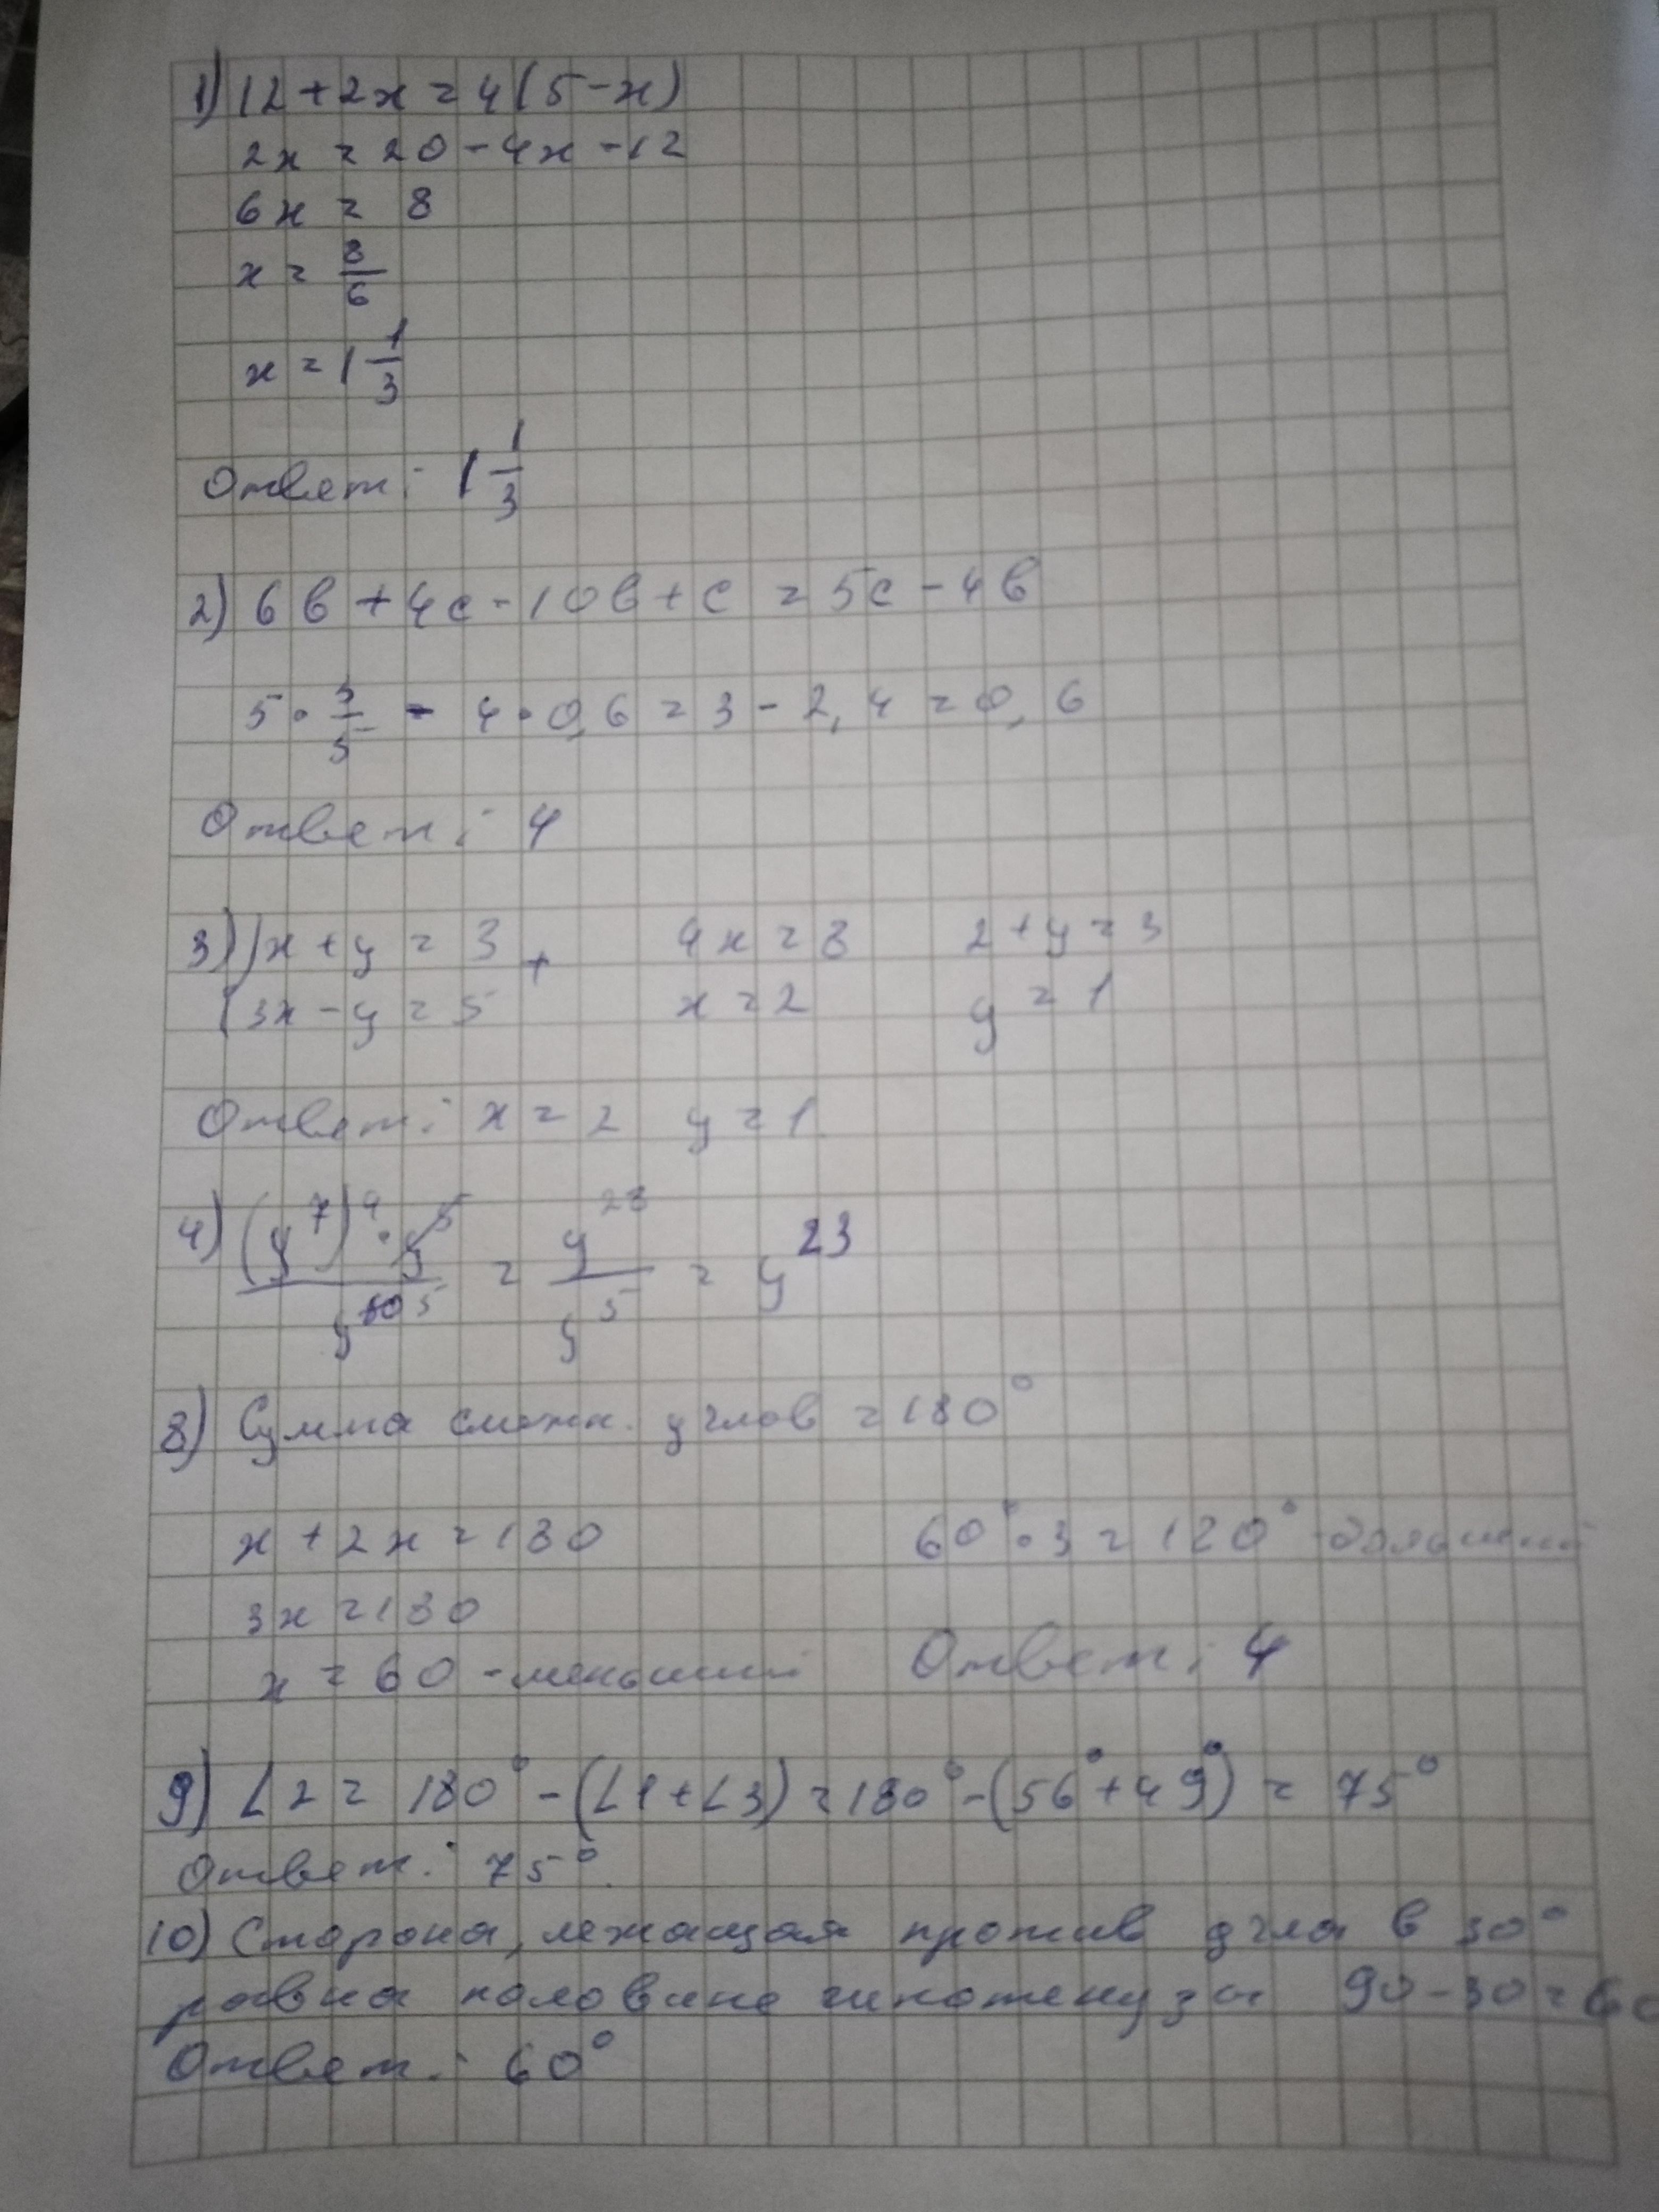 1) 12 + 2x = 4(5 - x)
2x = 20 - 4x - 12
6x = 8
x = 8/6
x = 1 1/3
Ответ: 1 1/3
2) 6b + 4c - 10b + c = 5c - 4b
5 · 3/5 - 4 · 0,6 = 3 - 2,4 = 0,6
Ответ: 4
3) { x + y = 3 + 4x = 8 2 + y = 3
3x - y = 5 x = 2 y = 1
Ответ: x = 2 y = 1
4) (y^7)^4 · y^5 / y^10 5 = y^28 / y^5 = y^23
8) Сумма смежн. углов = 180°
x + 2x = 180 60° · 3 = 120° - больший
3x = 180
x = 60 - меньший Ответ: 4
9) ∠2 = 180° - (∠1 + ∠3) = 180° - (56° + 49°) = 75°
Ответ: 75°.
10) Сторона, лежащая против угла в 30°
равна половине гипотенузы 90 - 30 = 60
Ответ: 60°